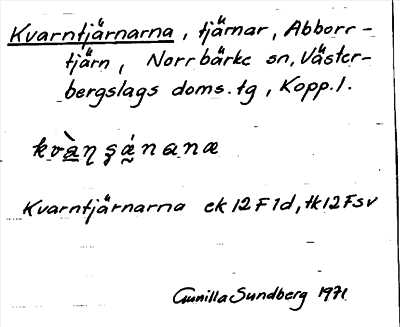 Kvarntjärnarna, tjärnar, Abborr-
tjärn, Norrbärke sn, Väster-
bergslags doms. tg, Kopp. l.
Kvarntjärnarna ek 12F1d, tk12Fsv
Gunilla Sundberg 1971